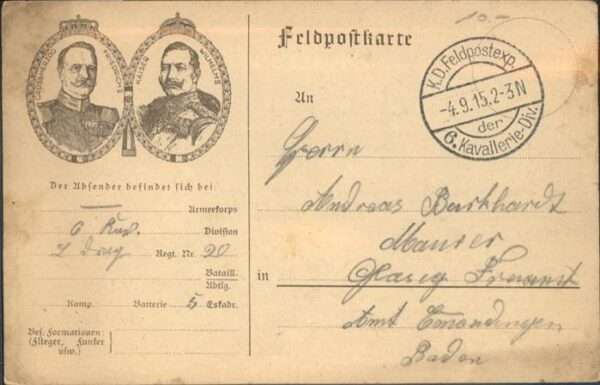 10.-
Feldpostkarte
GROSSHERZOG FRIEDRICHS
KAISER WILHELMS
K.D.Feldpostexp.
-4.9.15.2-3N
der
6.Kavallerie-Div.
An
Herrn
Andreas Burkhardt
Maurer
in
Amt Emmendingen
Baden
Der Absender befindet sich bei:
— Armeekorps
6 Kav. Division
Drag Regt. Nr. 20
Bataill.
Abtlg.
Komp. Batterie 5 Eskadr.
Bes. Formationen:
(Flieger, Funker
usw.)